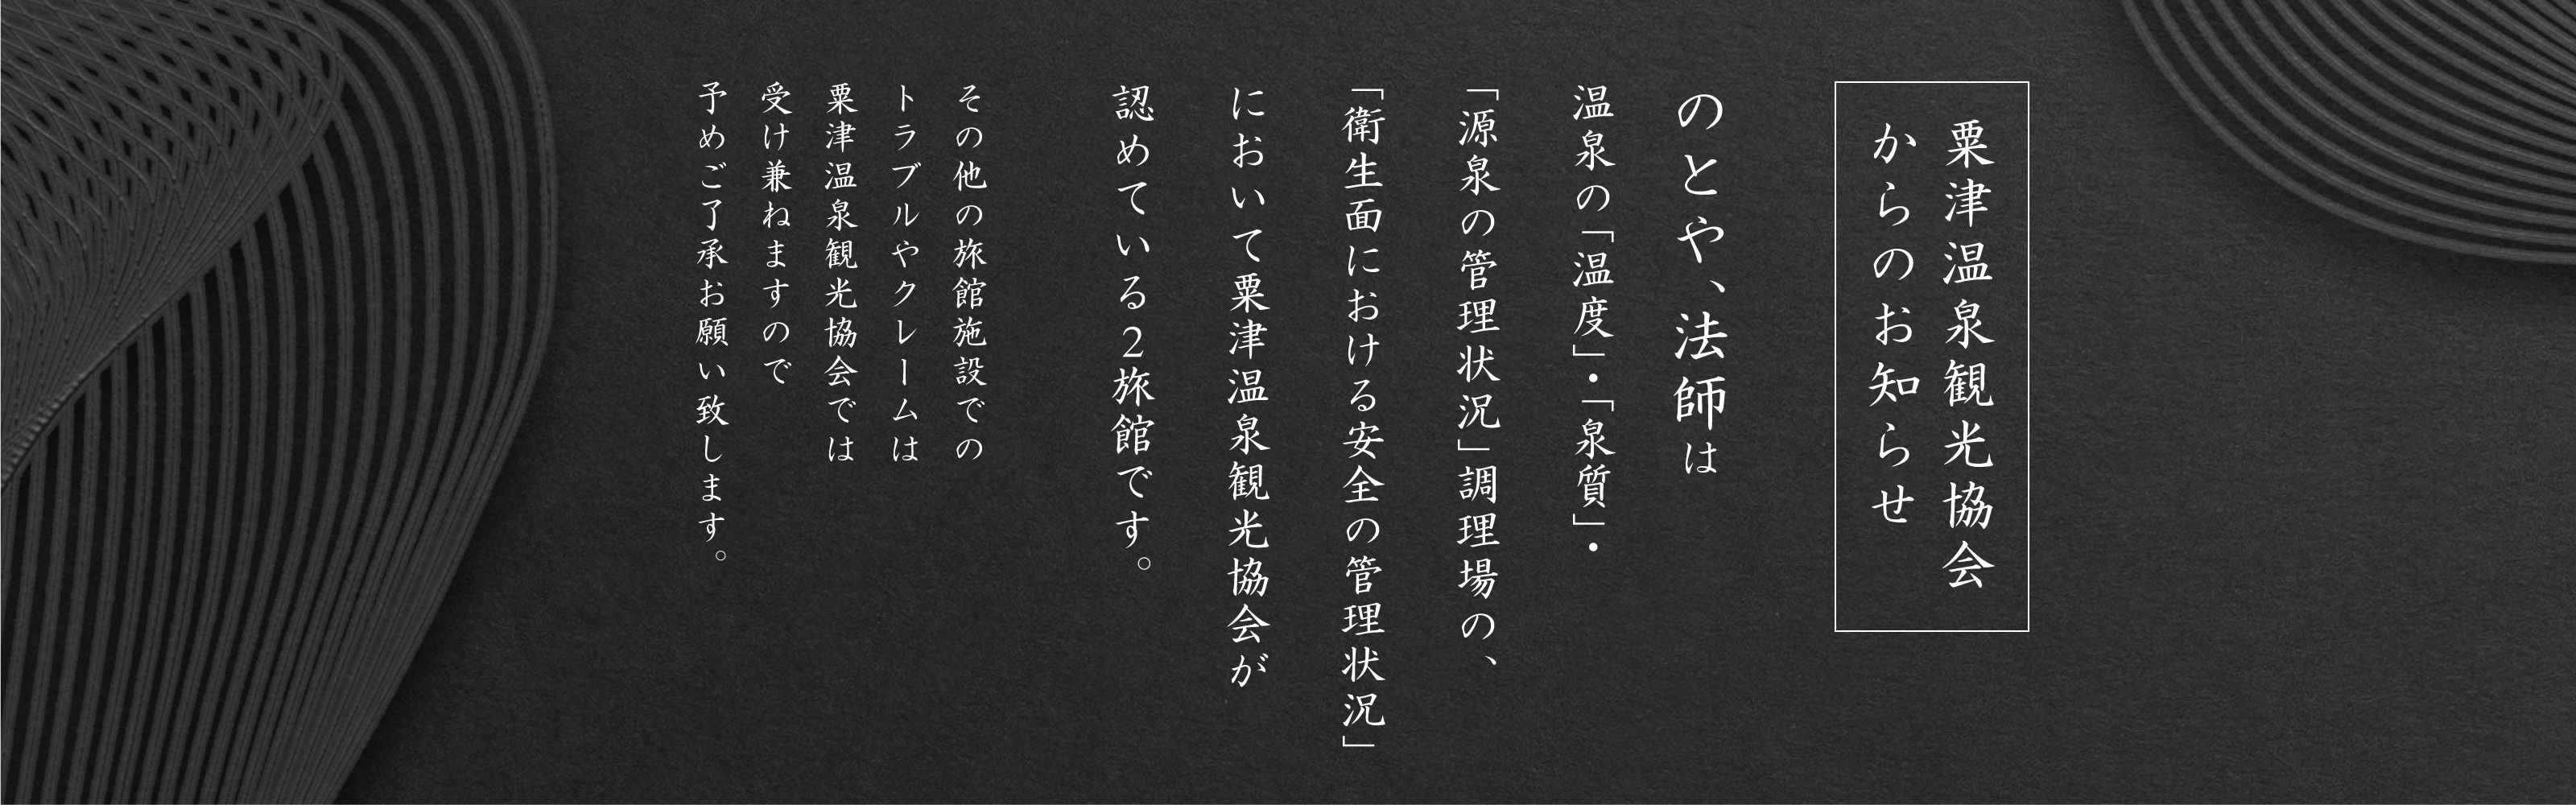 粟津温泉観光協会
からのお知らせ
のとや、法師は
温泉の「温度」・「泉質」・
「源泉の管理状況」調理場の、
「衛生面における安全の管理状況」
において粟津温泉観光協会が
認めている2旅館です。
その他の旅館施設での
トラブルやクレームは
粟津温泉観光協会では
受け兼ねますので
予めご了承お願い致します。